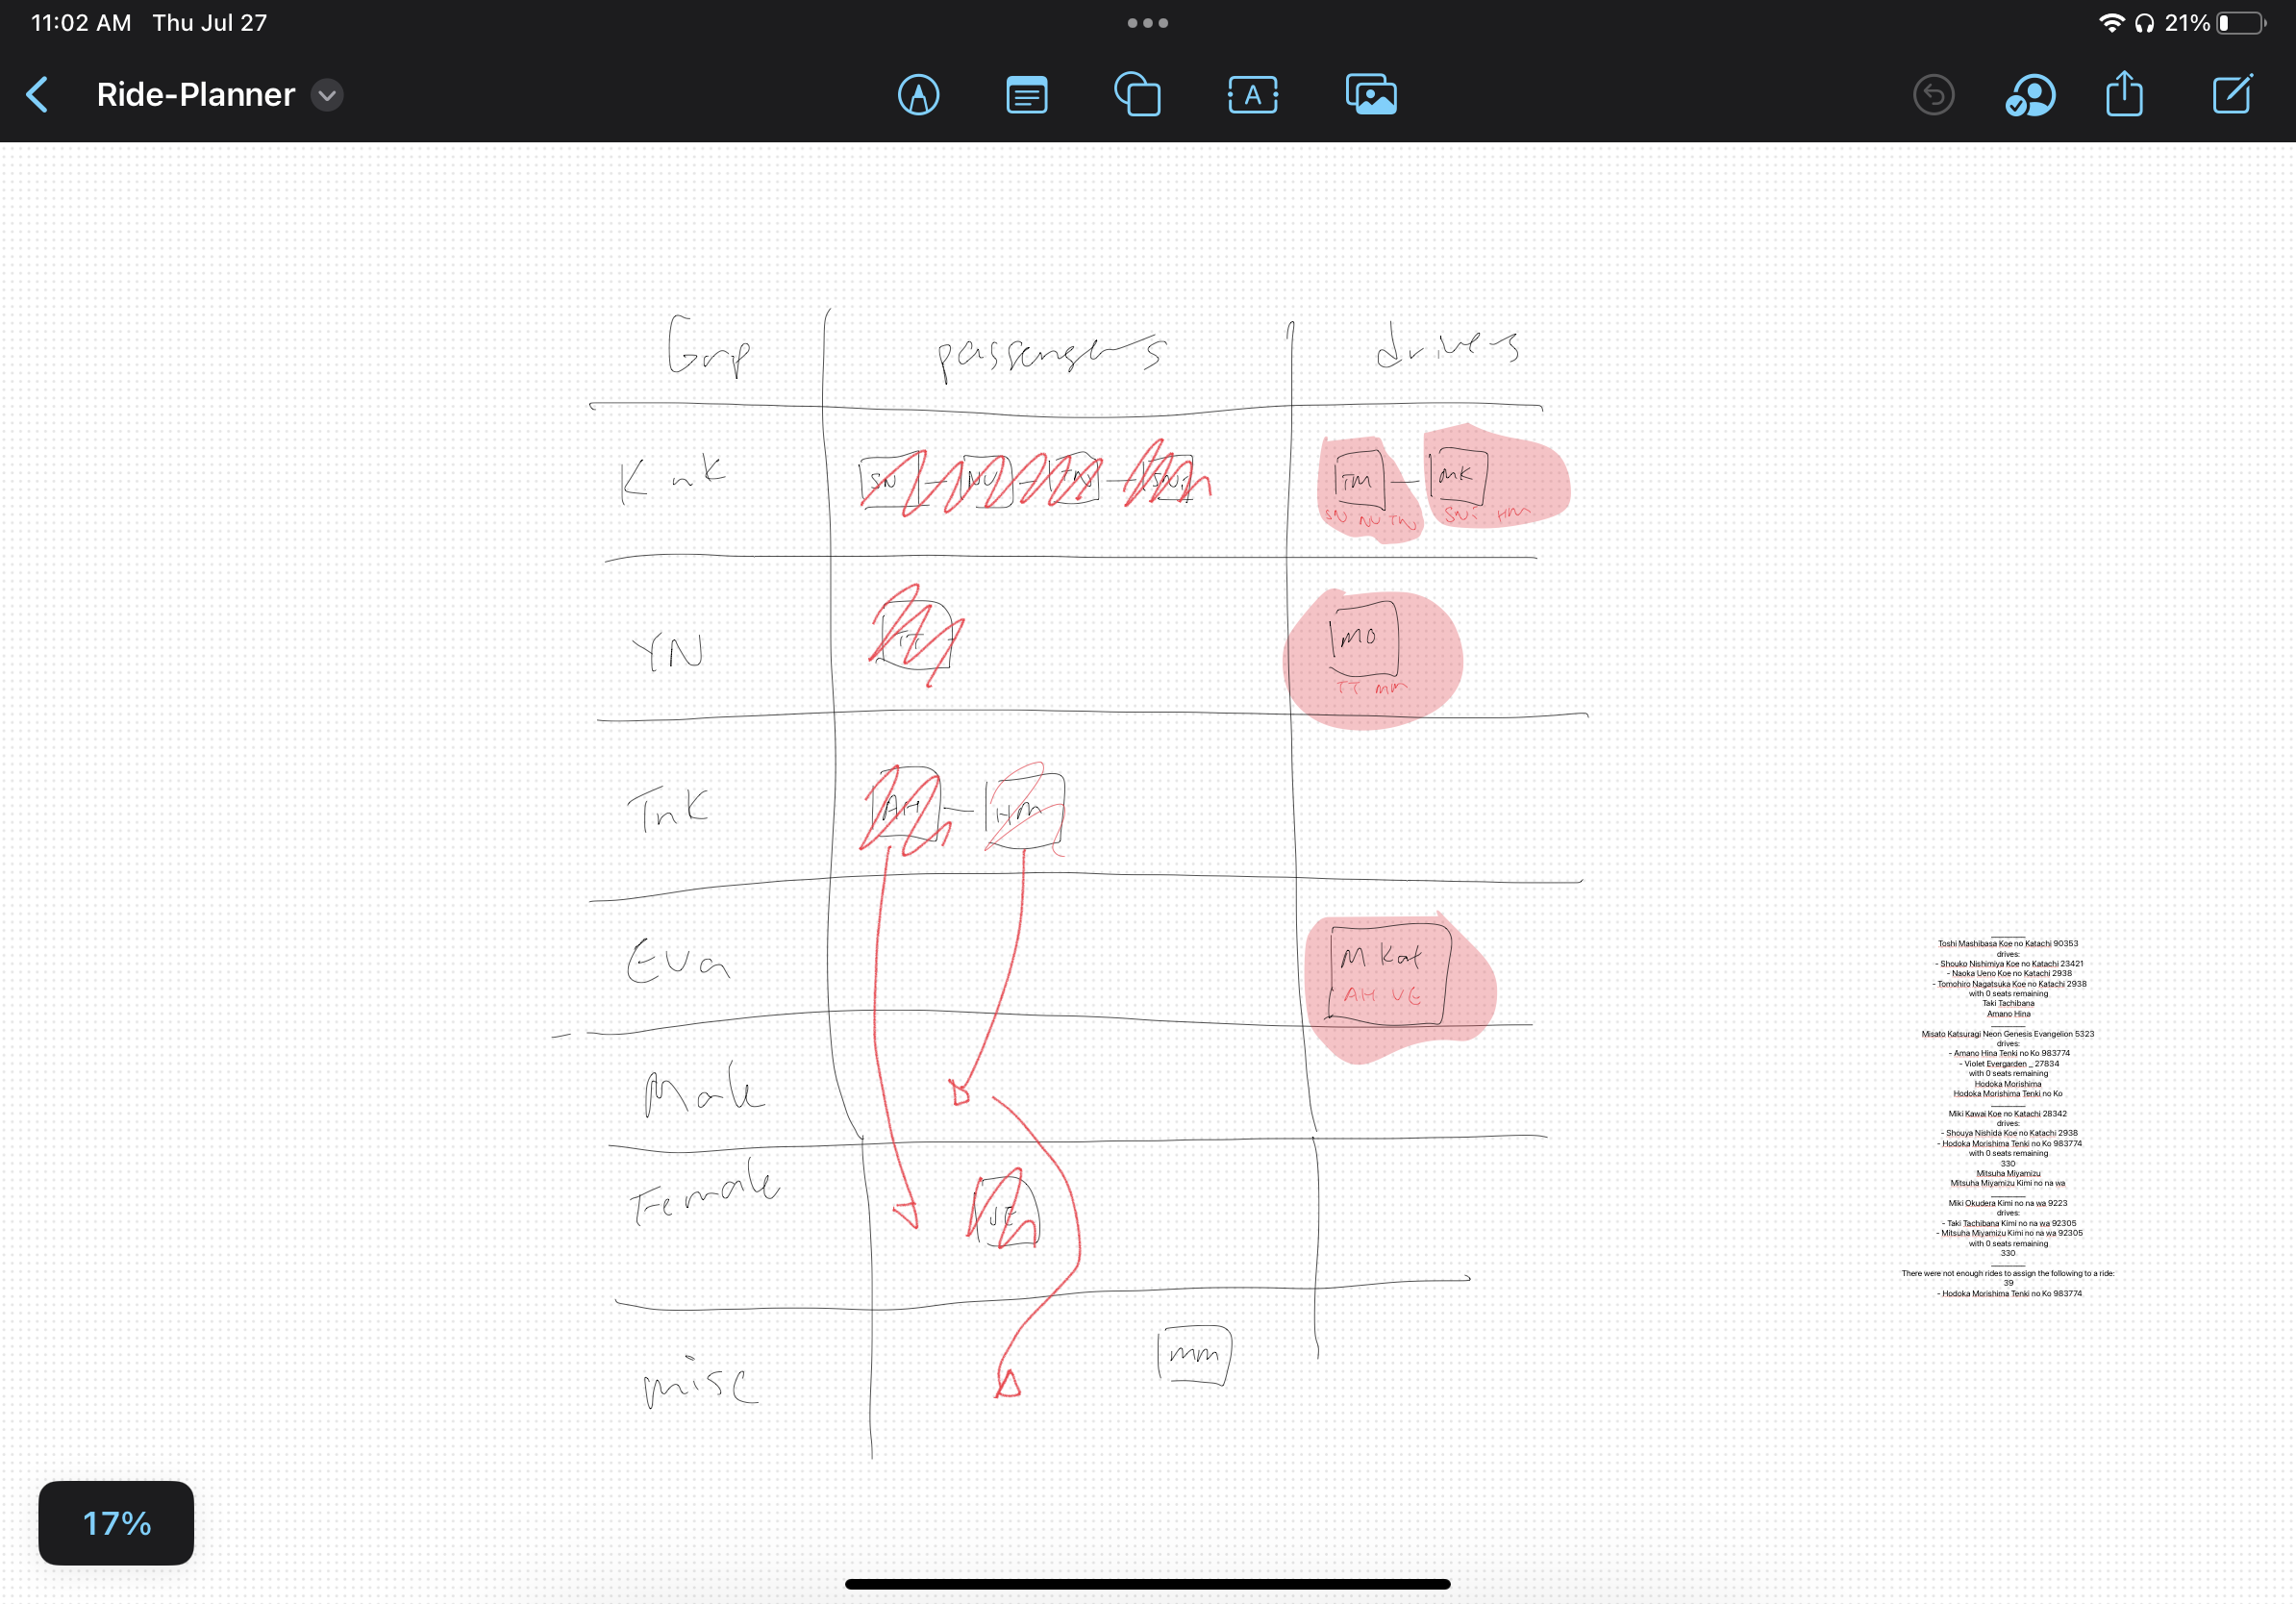 11:02 AM Thu Jul 27
21%
Ride-Planner
A
Grp passengers drivers
KnK SN NU TN SNi TM MK
SN NU TN SNi HM
YN TT MO
TT MM
TnK AH HM
Eva M Kat
AH VE
Male
Female VE
misc MM
Toshi Mashibasa Koe no Katachi 90353
drives:
- Shouko Nishimiya Koe no Katachi 23421
- Naoka Ueno Koe no Katachi 2938
- Tomohiro Nagatsuka Koe no Katachi 2938
with 0 seats remaining
Taki Tachibana
Amano Hina
Misato Katsuragi Neon Genesis Evangelion 5323
drives:
- Amano Hina Tenki no Ko 983774
- Violet Evergarden _ 27834
with 0 seats remaining
Hodoka Morishima
Hodoka Morishima Tenki no Ko
Miki Kawai Koe no Katachi 28342
drives:
- Shouya Nishida Koe no Katachi 2938
- Hodoka Morishima Tenki no Ko 983774
with 0 seats remaining
330
Mitsuha Miyamizu
Mitsuha Miyamizu Kimi no na wa
Miki Okudera Kimi no na wa 9223
drives:
- Taki Tachibana Kimi no na wa 92305
- Mitsuha Miyamizu Kimi no na wa 92305
with 0 seats remaining
330
There were not enough rides to assign the following to a ride:
39
- Hodoka Morishima Tenki no Ko 983774
17%